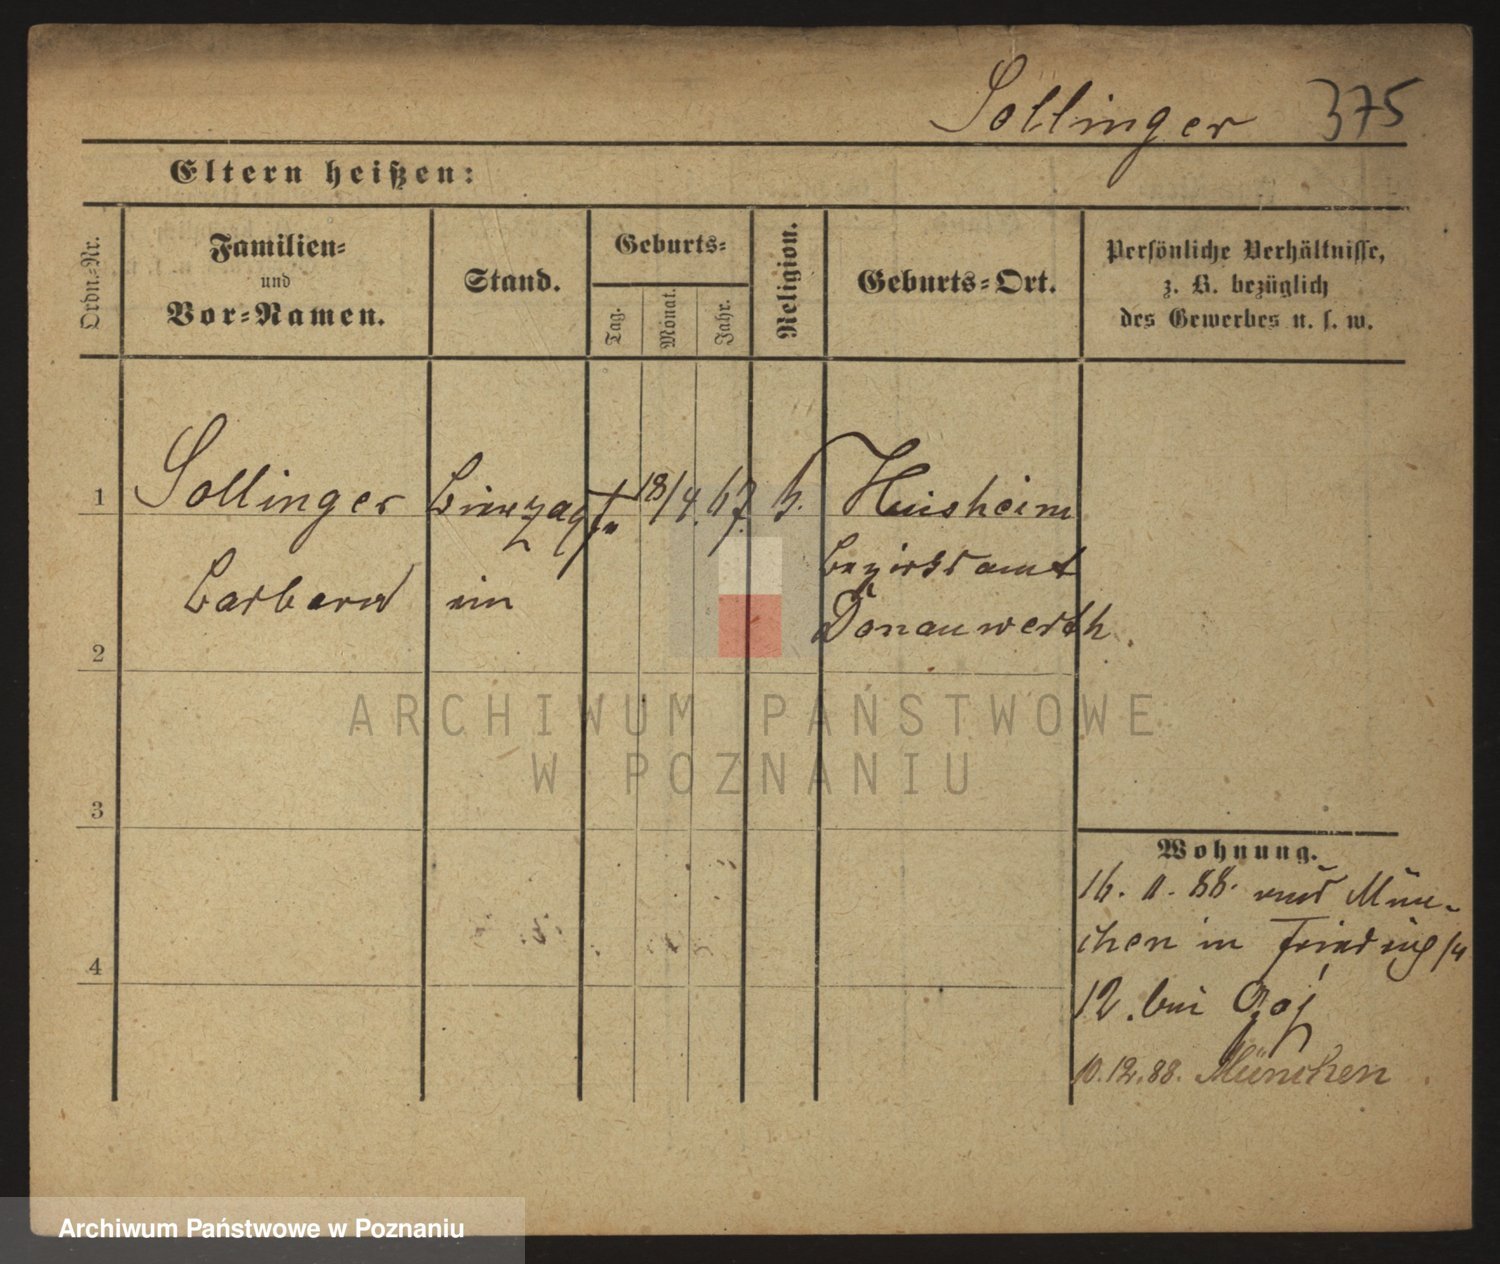 Sollinger 375
Eltern heißen:
Ordn.-Nr.
Familien-
und
Vor-Namen.
Stand.
Geburts-
Tag.
Monat.
Jahr.
Religion.
Geburts-Ort.
Persönliche Verhältnisse,
z. B. bezüglich
des Gewerbes u. s. w.
1
Sollinger
18/4. 67.
Huisheim
Bezirksamt
Barbara
Donauwerth.
2
ARCHIWUM PAŃSTWOWE
W POZNANIU
3
Wohnung.
16. 11. 88. aus Mün-
chen in
4
12. bei
10.12.88. München
Archiwum Państwowe w Poznaniu